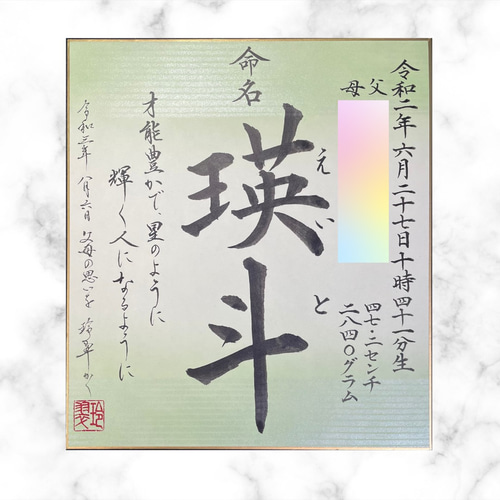 令和二年六月二十七日十時四十一分生
父
母
四七・二センチ
二八四〇グラム
命名
えいと
瑛斗
才能豊かで、星のように
輝く人になるように
令和二年 八月六日 父母の思いを